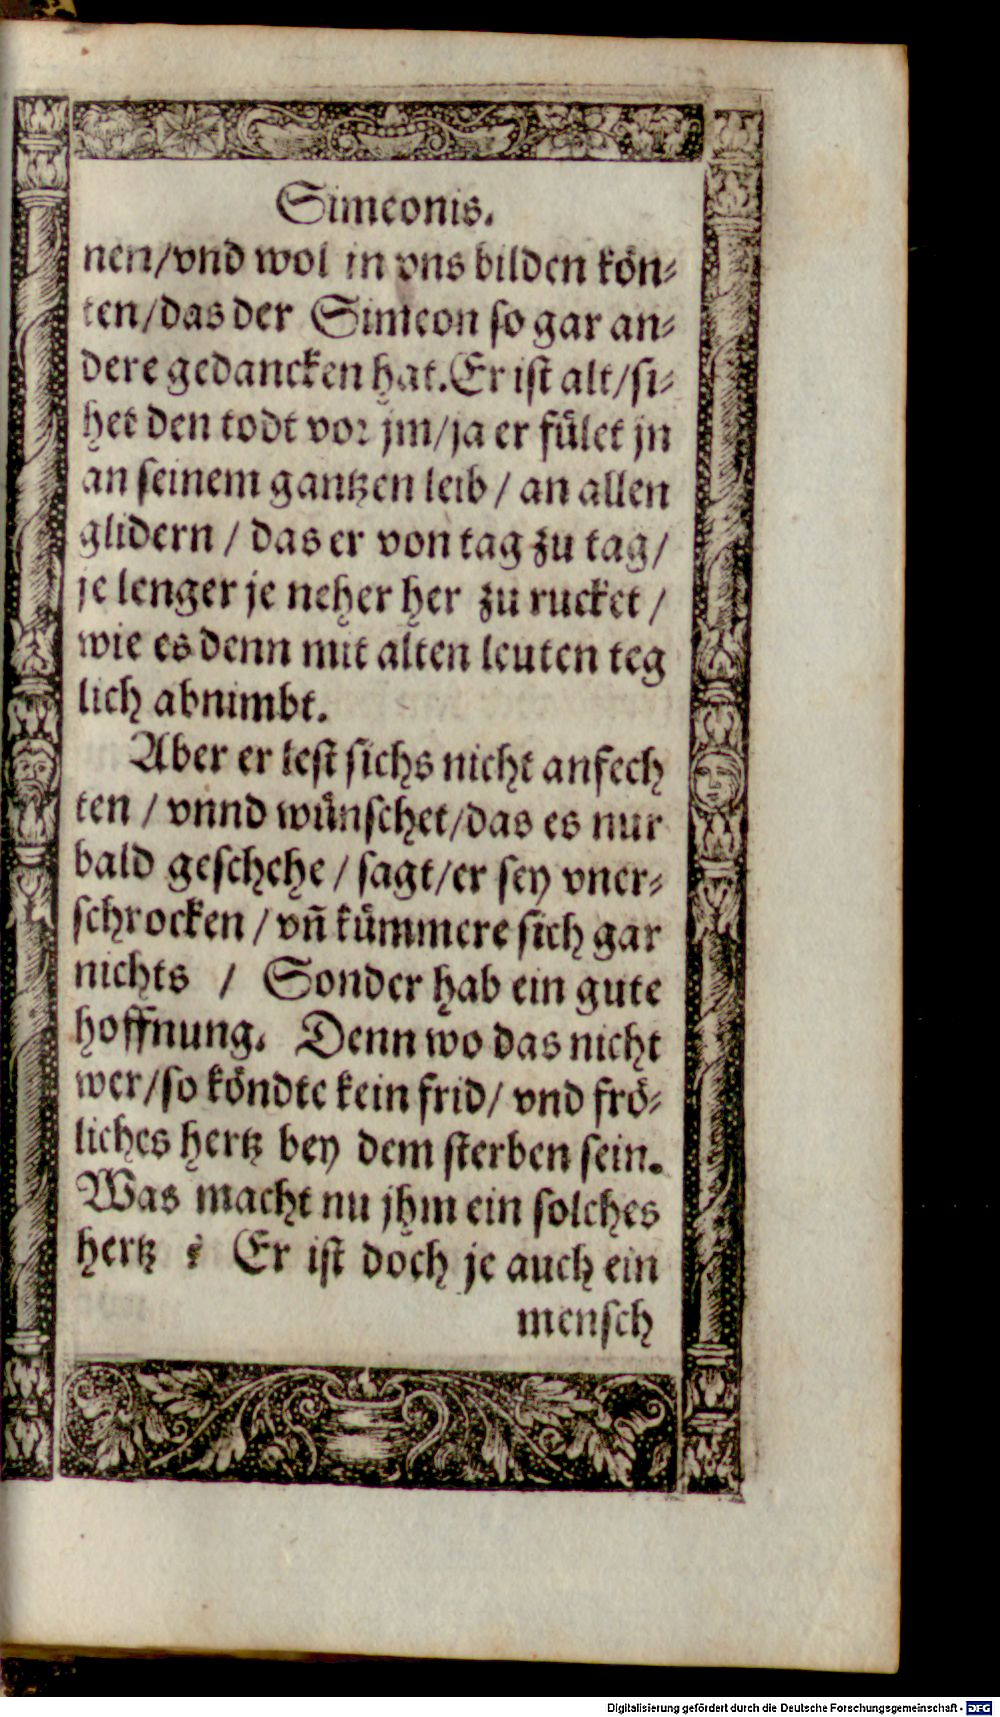 Simeonis.
nen/vnd wol in vns bilden kön⸗
ten/das der Simeon so gar an⸗
dere gedancken hat. Er ist alt/si⸗
het den todt vor jm/ja er fület jn
an seinem gantzen leib / an allen
glidern / das er von tag zu tag/
je lenger je neher her zu rucket /
wie es denn mit alten leuten teg
lich abnimbt.
Aber er lest sichs nicht anfech
ten / vnnd wünschet/das es nur
bald geschehe / sagt/er sey vner⸗
schrocken / vñ kümmere sich gar
nichts / Sonder hab ein gute
hoffnung. Denn wo das nicht
wer/so köndte kein frid/ vnd frö⸗
liches hertz bey dem sterben sein.
Was macht nu jhm ein solches
hertz ? Er ist doch je auch ein
mensch
Digitalisierung gefördert durch die Deutsche Forschungsgemeinschaft - DFG